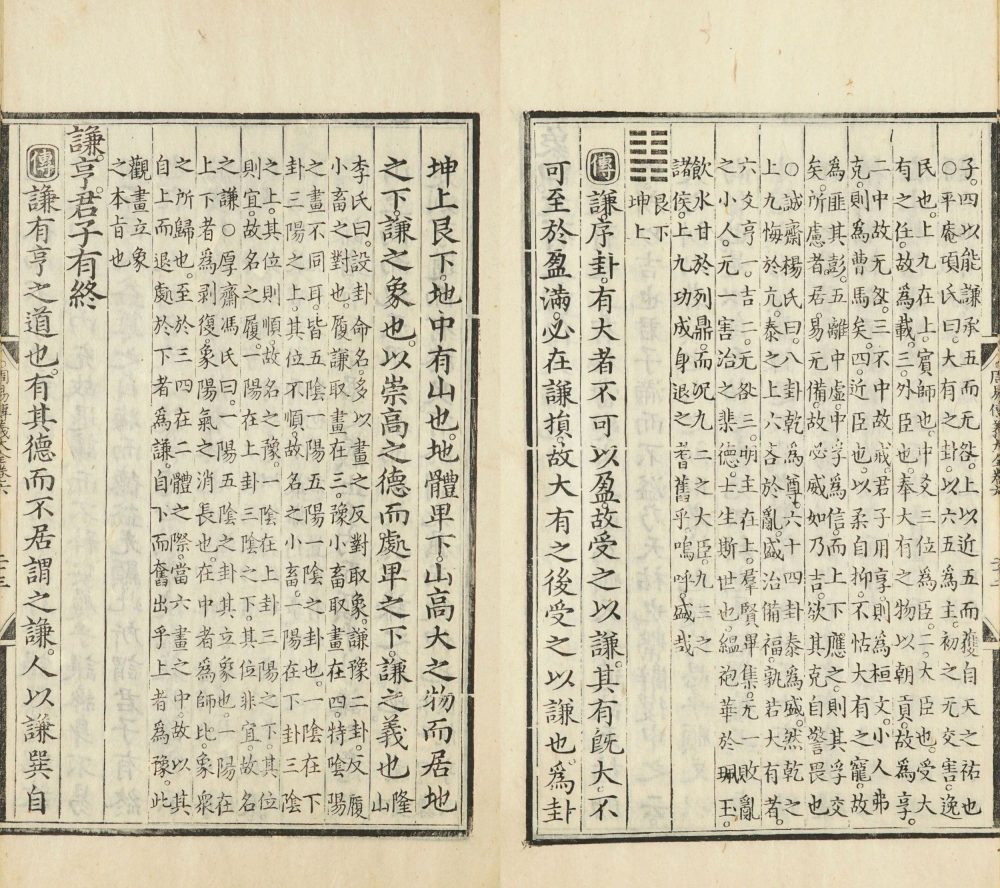 子。四以能謙承五而无咎。上以近五而獲自天之祐也
○平庵項氏曰。大有之卦。以六五為主。初之无交害。逸
民也。上九在上。賓師也。中爻三位為臣。二大臣也。受大
有之任。故為載。三外臣也。奉大有之物以朝貢。故為享。
二中故无咎。三不中故戒。君子用享。則為桓文。小人弗
克。則為曹馬矣。四近臣也。以柔自抑。不怙大有之寵。故
為匪其彭。五離中虛。中孚為信。而上下應之。則其孚交
矣。所慮者居易无備。故必威如乃吉。欲其克自警畏也
○誠齋楊氏曰。八卦乾為尊。六十四卦泰為盛。然乾之
上九悔於亢。泰之上六吝於亂。盛治備福。孰若大有者。
六爻亨一。吉二。无咎三。明主在上。羣賢畢集。无一敗亂
之小人。无一害治之悲德。士生斯世也。縕袍華於珮玉。
飲水甘於列鼎。而况九二之大臣。九三之
諸侯。上九功成身退之耆舊乎。嗚呼盛哉
艮下
坤上
傳 謙。序卦。有大者不可以盈。故受之以謙。其有旣大。不
可至於盈滿。必在謙損。故大有之後受之以謙也。為卦
坤上艮下。地中有山也。地體卑下。山高大之物而居地
之下。謙之象也。以崇高之德而處卑之下。謙之義也 隆山
李氏曰。設卦命名。多以畫之反對取象。謙豫二卦。反履
小畜之對也。履謙取畫在三。豫小畜取畫在四。特陰陽
之畫不同耳。皆五陰一陽五陽一陰之卦也。一陰在下
卦三陽之上。其位不順。故名之小畜。一陽在下卦三陰
之上。其位則順。故名之豫。一陰在上卦三陽之下。其位
則宜。故名之履。一陽在上卦三陰之下。其位非宜。故名
之謙○厚齋馮氏曰。一陽五陰之卦。其立象也。一陽在
上下者為剥復。象陽氣之消長也。在中者為師比。象衆
之所歸也。至於三四在二體之際。當六畫之中。故以其
自上而退處於下者為謙。自下而奮出乎上者為豫。此
觀畫立象
之本旨也
謙。亨。君子有終
傳 謙有亨之道也。有其德而不居謂之謙。人以謙巽自